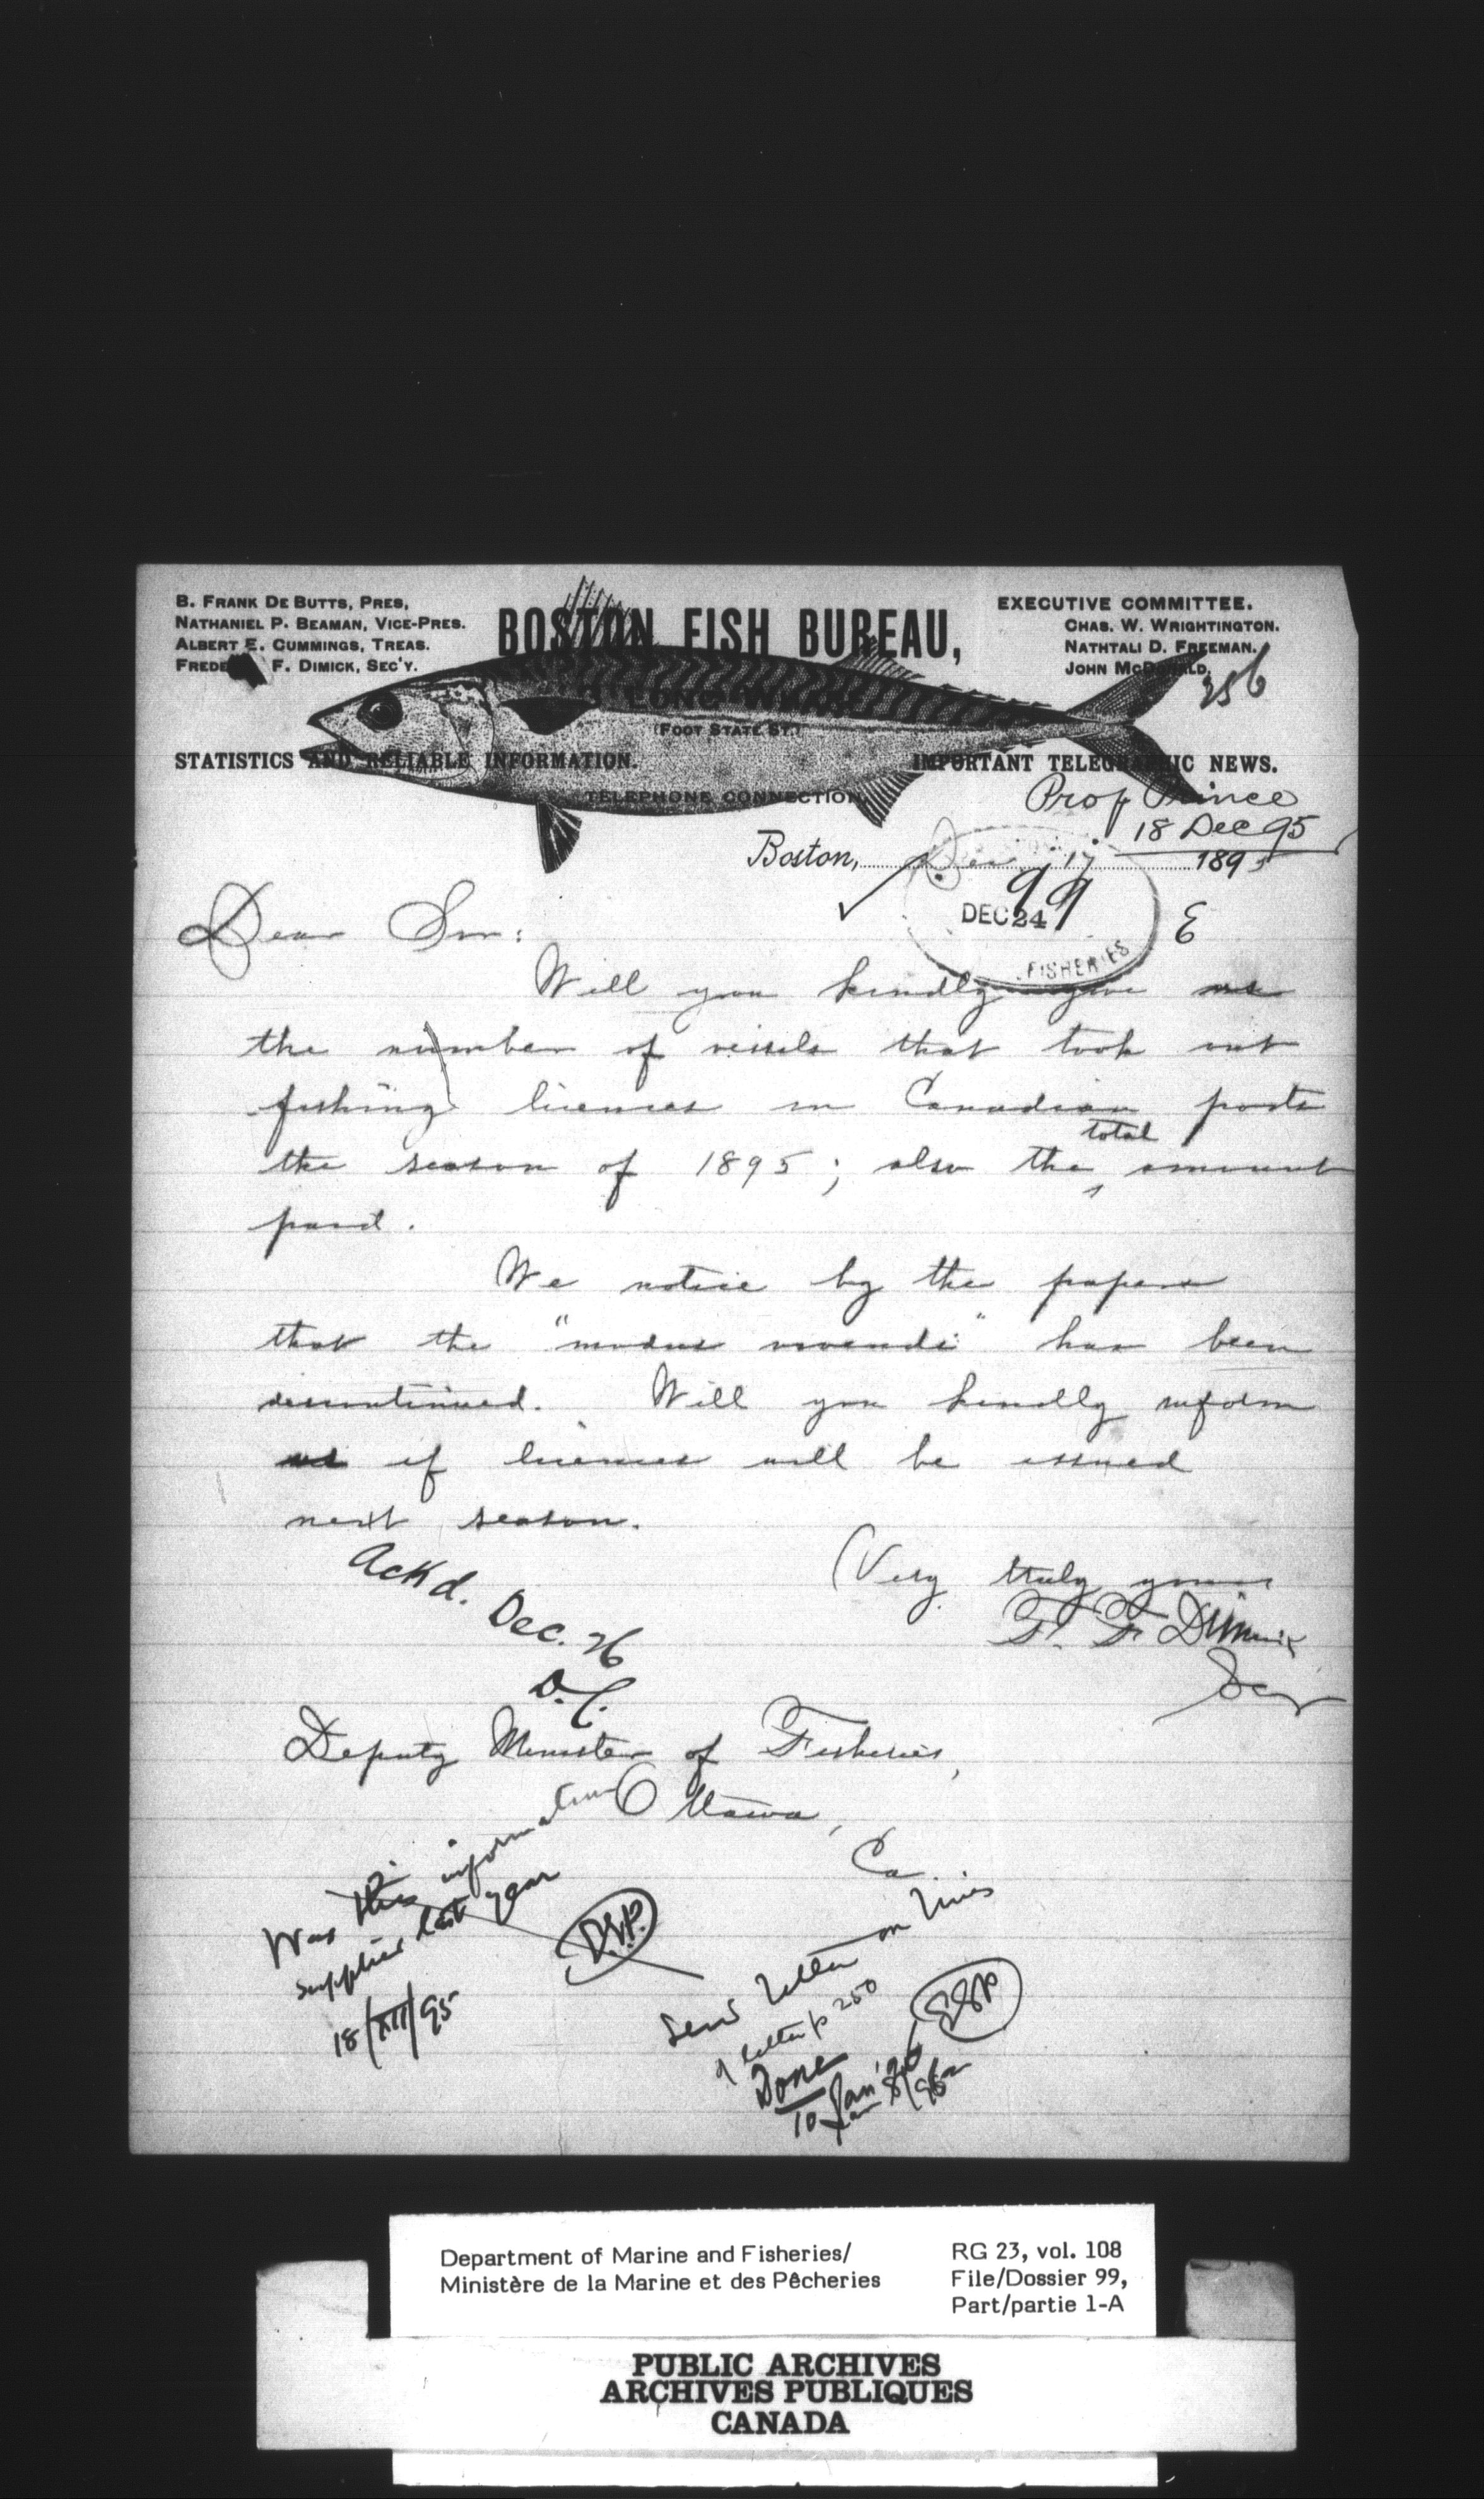 B. FRANK DE BUTTS, PRES,
NATHANIEL P. BEAMAN, VICE-PRES.
ALBERT E. CUMMINGS, TREAS.
FREDE F. DIMICK, SEC'Y.
BOSTON FISH BUREAU,
EXECUTIVE COMMITTEE.
CHAS. W. WRIGHTINGTON.
NATHTALI D. FREEMAN.
JOHN MCDONALD.
256
LONG WHARF
(FOOT STATE ST.)
STATISTICS AND RELIABLE INFORMATION.
IMPORTANT TELEGRAPHIC NEWS.
TELEPHONE CONNECTION.
Prof Prince
18 Dec 95
Boston, Dec 17 1895
99
DEC 24
FISHERIES
E
Dear Sir:
Will you kindly give us
the number of vessels that took out
fishing licenses in Canadian ports
the season of 1895; also the total amount
paid.
We notice by the papers
that the "modus vivendi" has been
discontinued. Will you kindly inform
us if licenses will be issued
next season.
Ackd. Dec. 26
D.C.
Very truly yours
F. F. Dimick
Secy
Deputy Minister of Fisheries,
Ottawa,
Ca
Was this information
supplied last year
18/XII/95
Send letter on lines
of letter p 250
Done
10 Jan '96
Department of Marine and Fisheries/
Ministère de la Marine et des Pêcheries
RG 23, vol. 108
File/Dossier 99,
Part/partie 1-A
PUBLIC ARCHIVES
ARCHIVES PUBLIQUES
CANADA